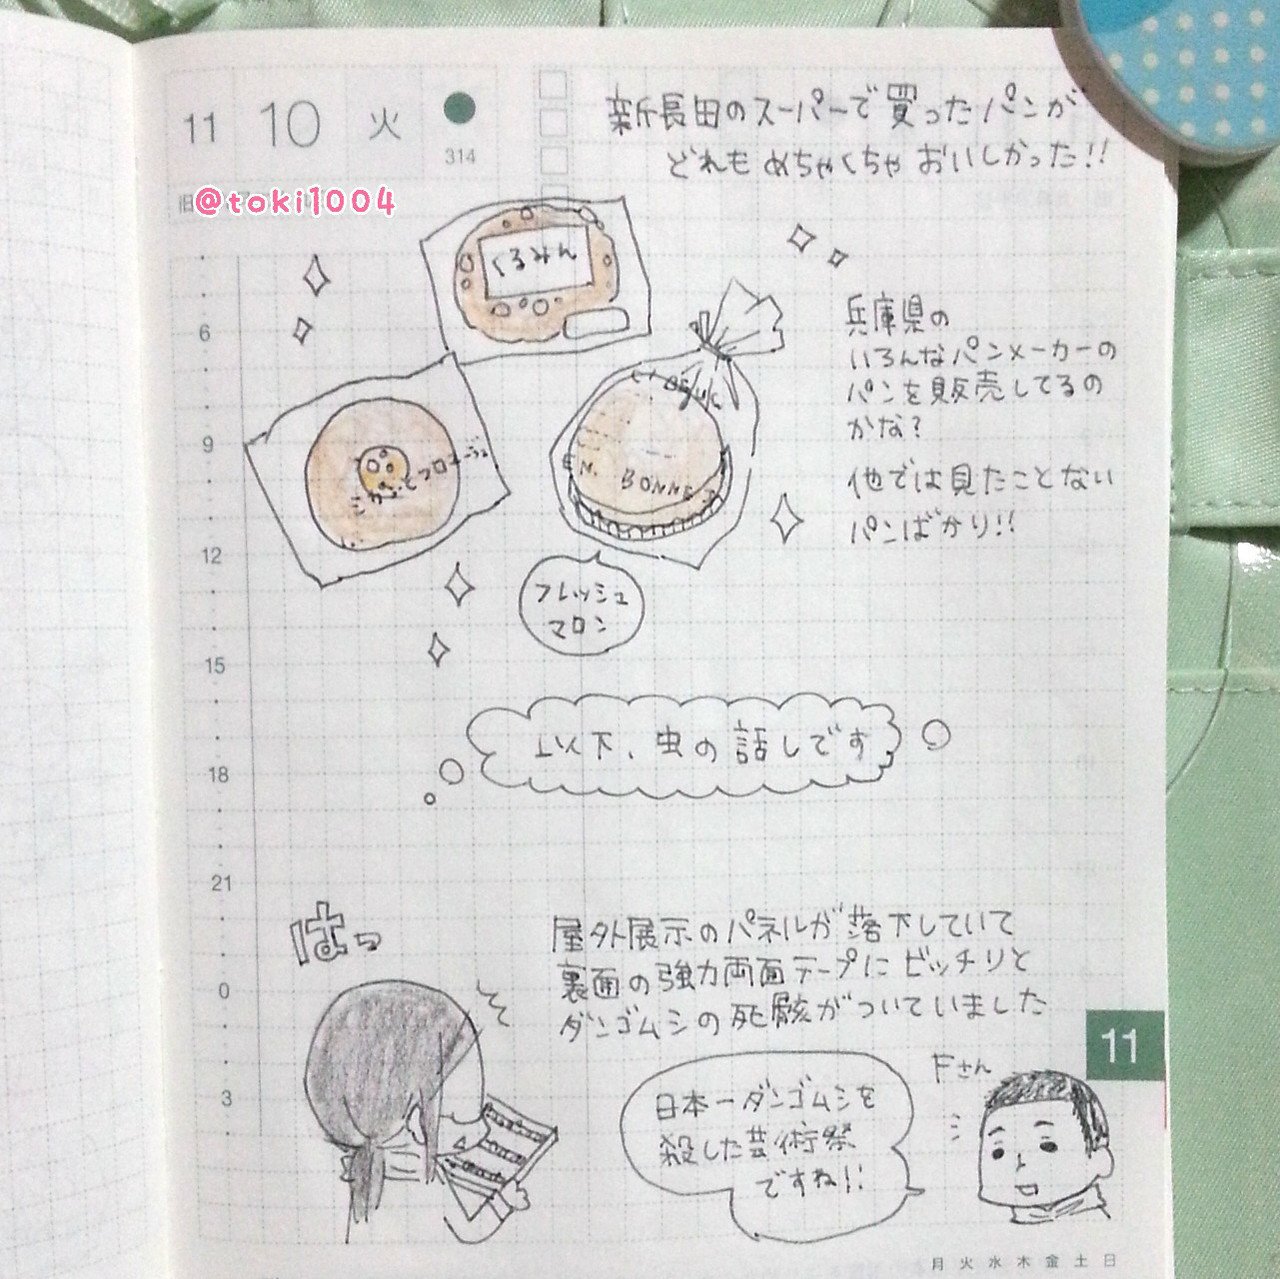 11 10 火
314
@toki1004
新長田のスーパーで買ったパンが
どれもめちゃくちゃおいしかった!!
くるみん
EN. BONNET
フレッシュ
マロン
兵庫県の
いろんなパンメーカーの
パンを販売してるの
かな?
他では見たことない
パンばかり!!
6
9
12
15
18
21
0
3
以下、虫の話しです
はっ
屋外展示のパネルが落下していて
裏面の強力両面テープにビッチリと
ダンゴムシの死骸がついていました
11
Fさん
日本一ダンゴムシを
殺した芸術祭
ですね!!
月 火 水 木 金 土 日